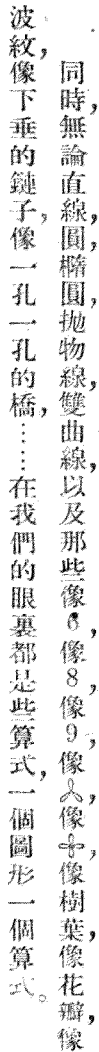 同時,無論直線,圓,橢圓,拋物線,雙曲線,以及那些像6,像8,像9,像,像,像樹葉,像花瓣,像
波紋,像下垂的鏈子,像一孔一孔的橋,……在我們的眼裏都是些算式,一個圖形一個算式。